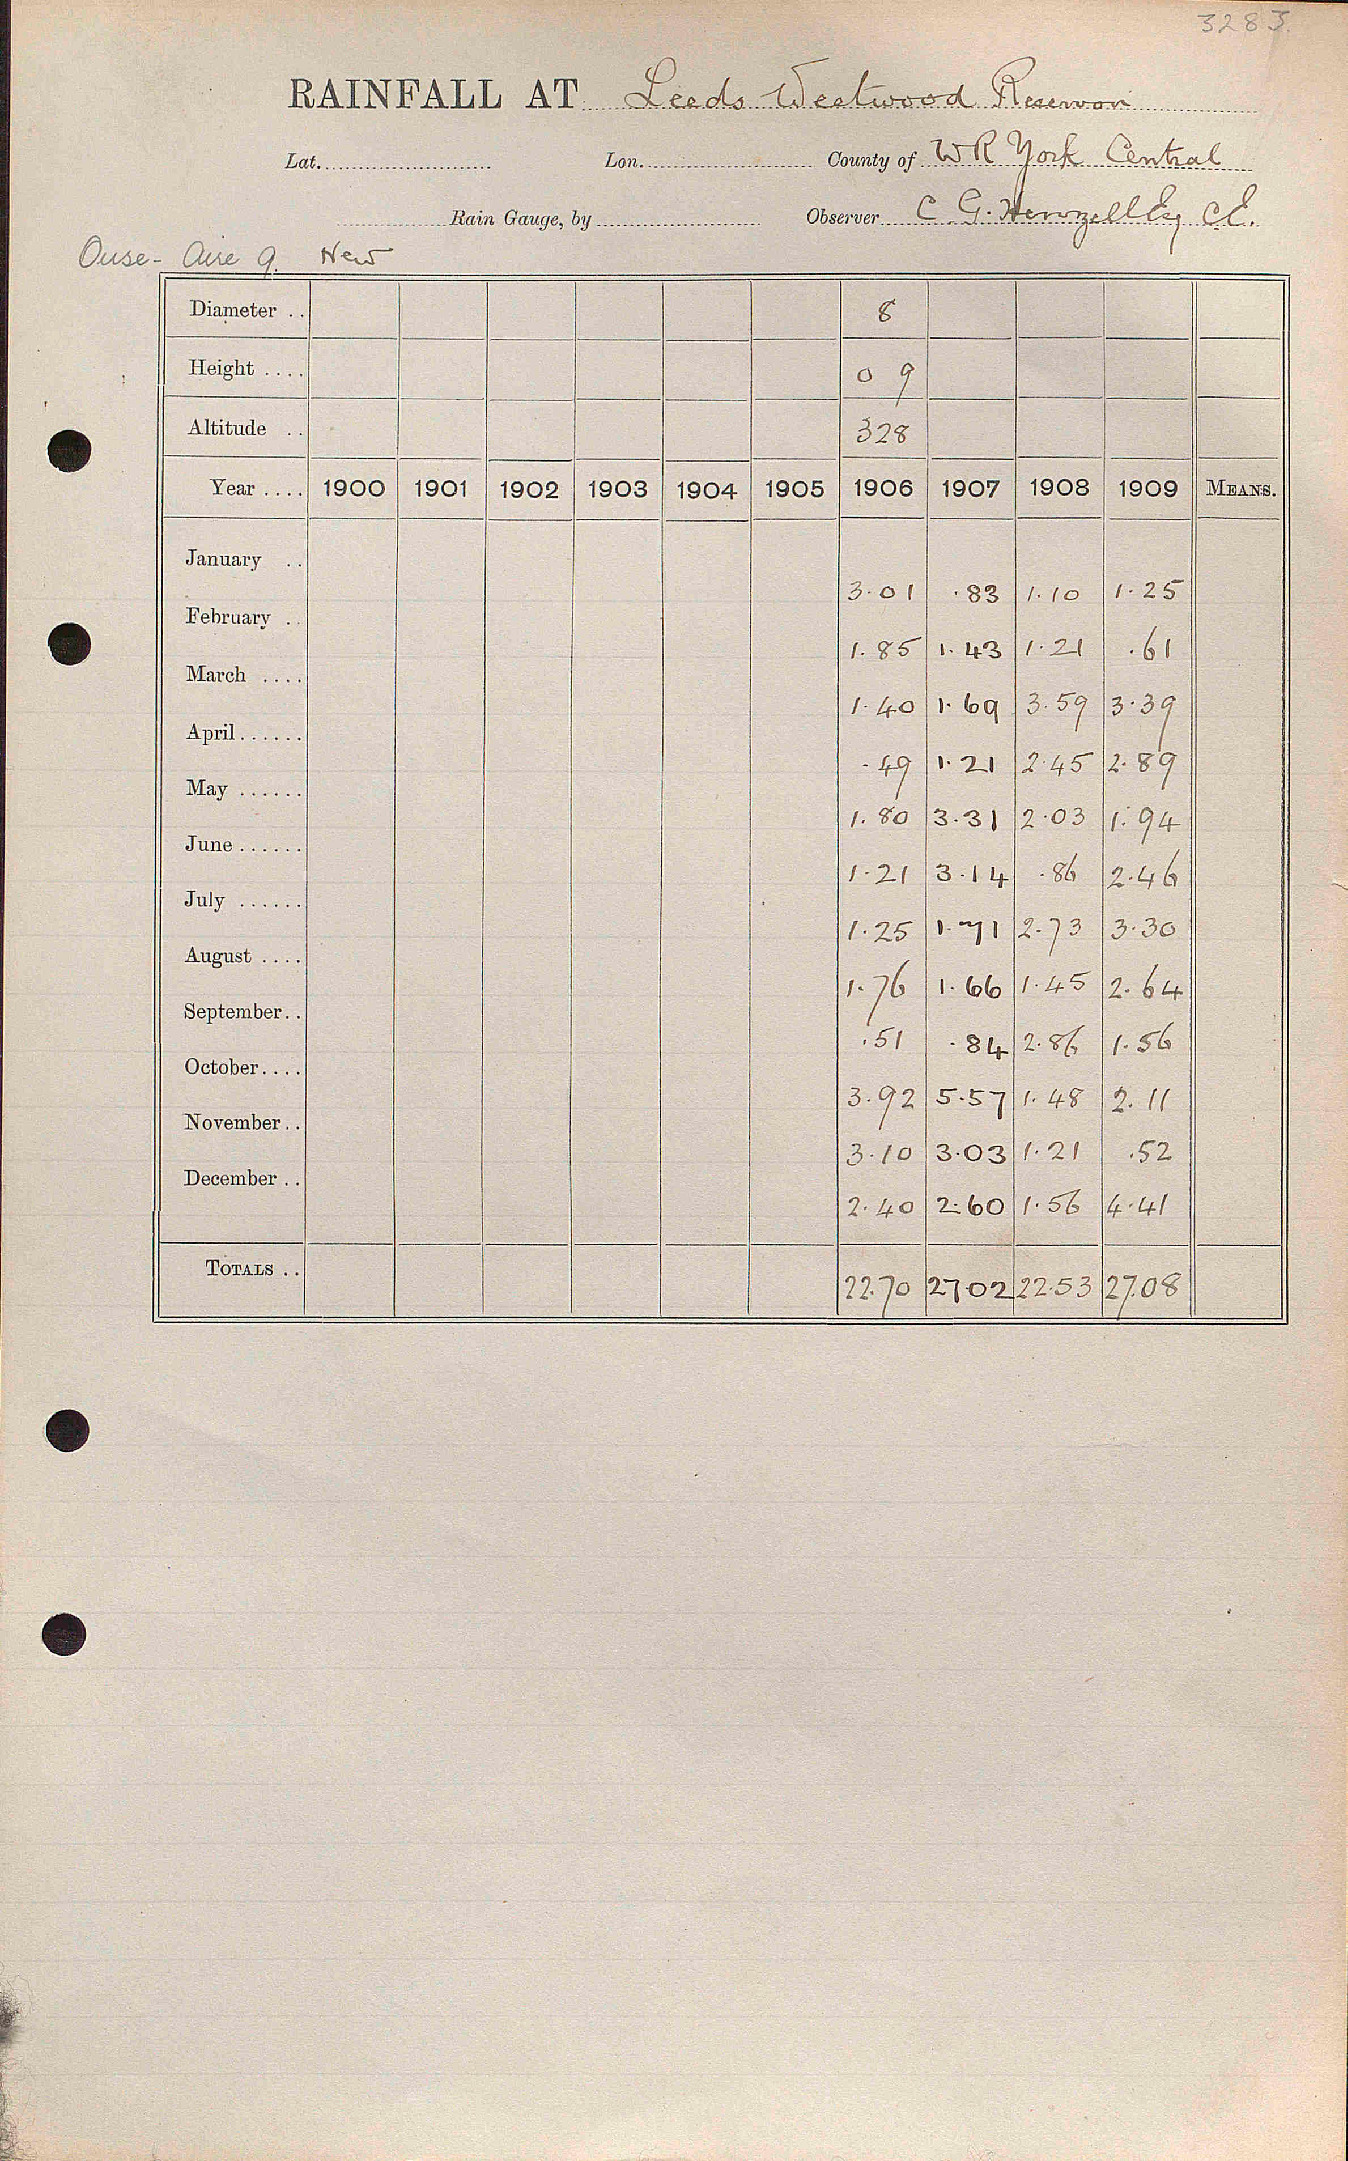 3283.
RAINFALL AT Leeds Westwood Reservoir
Lat. Lon. County of W R York Central
Rain Gauge, by Observer C. G. Henzell Esq C.E.
Ouse - Aire 9. New
Diameter .. 8
Height .... 0 9
Altitude .. 328
Year .... 1900 1901 1902 1903 1904 1905 1906 1907 1908 1909 MEANS.
January .. 3.01 .83 1.10 1.25
February .. 1.85 1.43 1.21 .61
March .... 1.40 1.69 3.59 3.39
April...... .49 1.21 2.45 2.89
May ...... 1.80 3.31 2.03 1.94
June...... 1.21 3.14 .86 2.46
July ...... 1.25 1.71 2.73 3.30
August .... 1.76 1.66 1.45 2.64
September.. .51 .84 2.86 1.56
October.... 3.92 5.57 1.48 2.11
November.. 3.10 3.03 1.21 .52
December .. 2.40 2.60 1.56 4.41
TOTALS .. 22.70 27.02 22.53 27.08